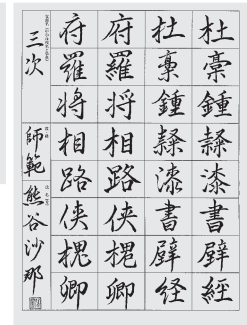 杜稾鍾隸漆書壁經
杜稾鍾隷漆書壁経
府羅将相路俠槐卿
府羅将相路侠槐卿
三次
師範 熊谷沙那